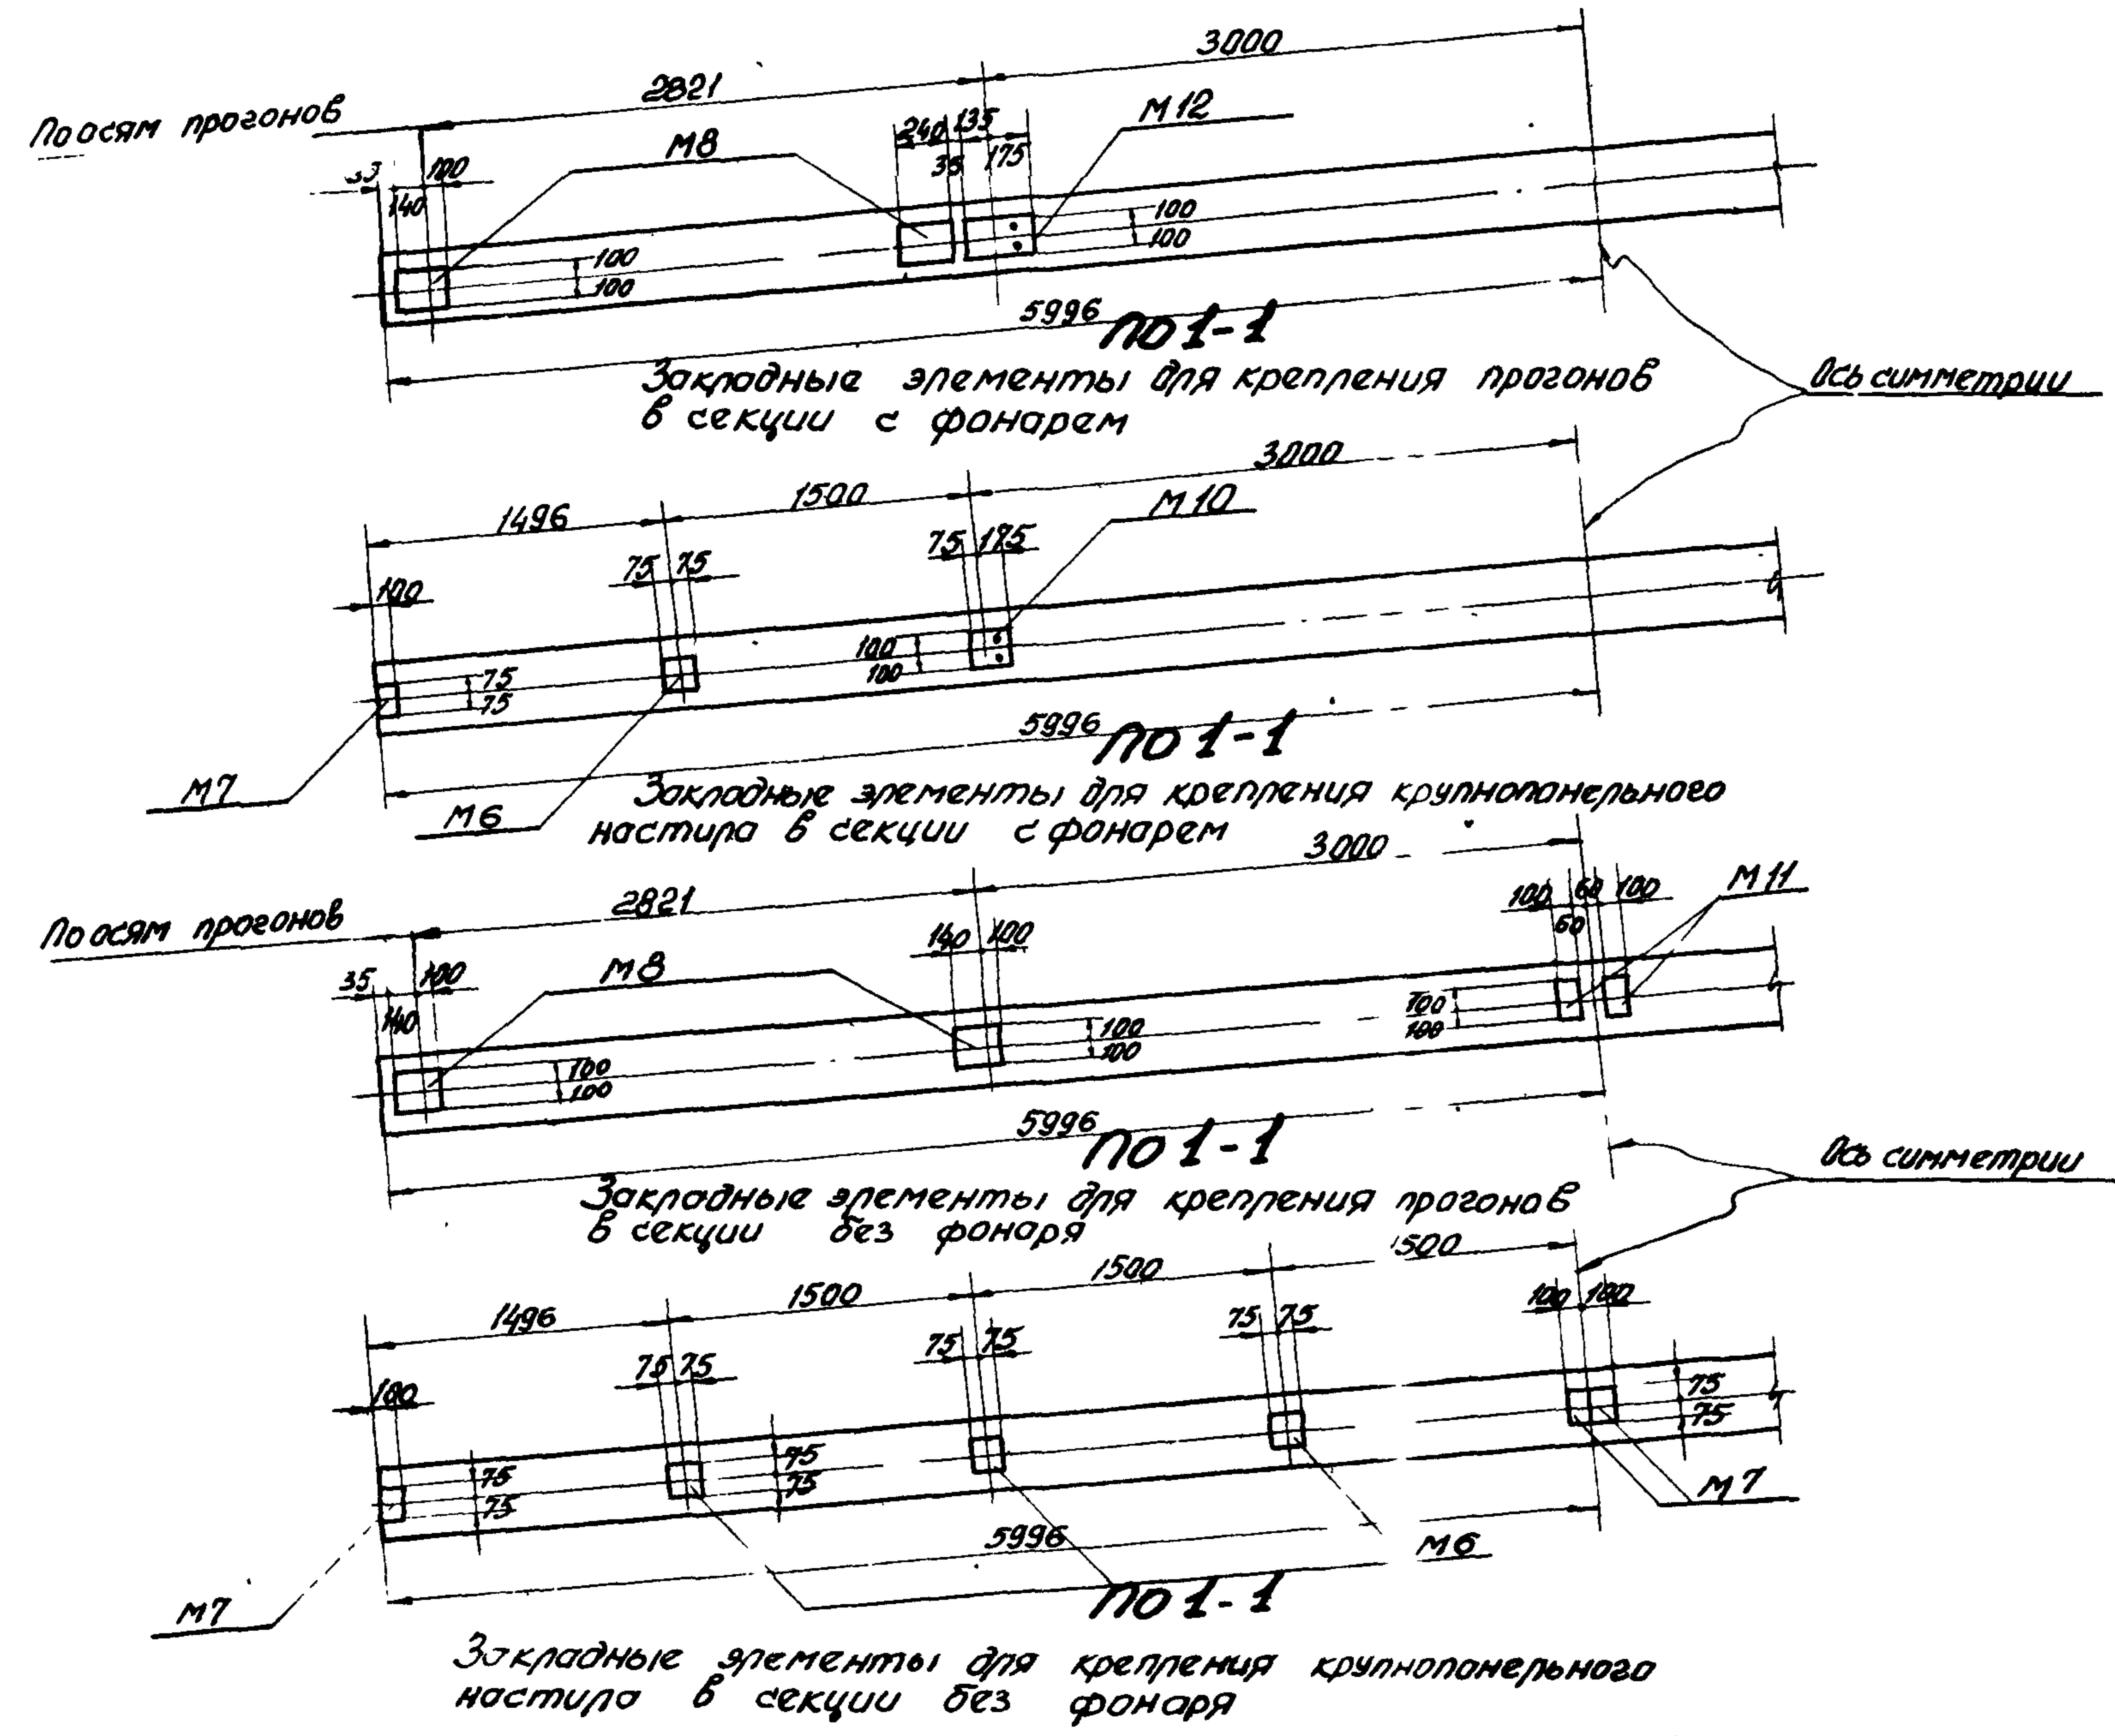 3000
2821
По осям прогонов
М8
240 135
35 175
М12
100
140
100
100
100
100
5996
По 1-1
Закладные элементы для крепления прогонов
в секции с фонарем
Ось симметрии
3000
1500
1496
М10
75 75
75 175
100
100
100
75
75
5996
По 1-1
М7
М6
Закладные элементы для крепления крупнопанельного
настила в секции с фонарем
3000
2821
По осям прогонов
М11
100 60 100
60
140 100
М8
35 100
140
100
100
100
100
100
100
5996
По 1-1
Ось симметрии
Закладные элементы для крепления прогонов
в секции без фонаря
1500
1500
1496
100 100
75 75
75 75
75 75
100
75
75
75
75
75
75
М7
5996
М6
По 1-1
М7
Закладные элементы для крепления крупнопанельного
настила в секции без фонаря